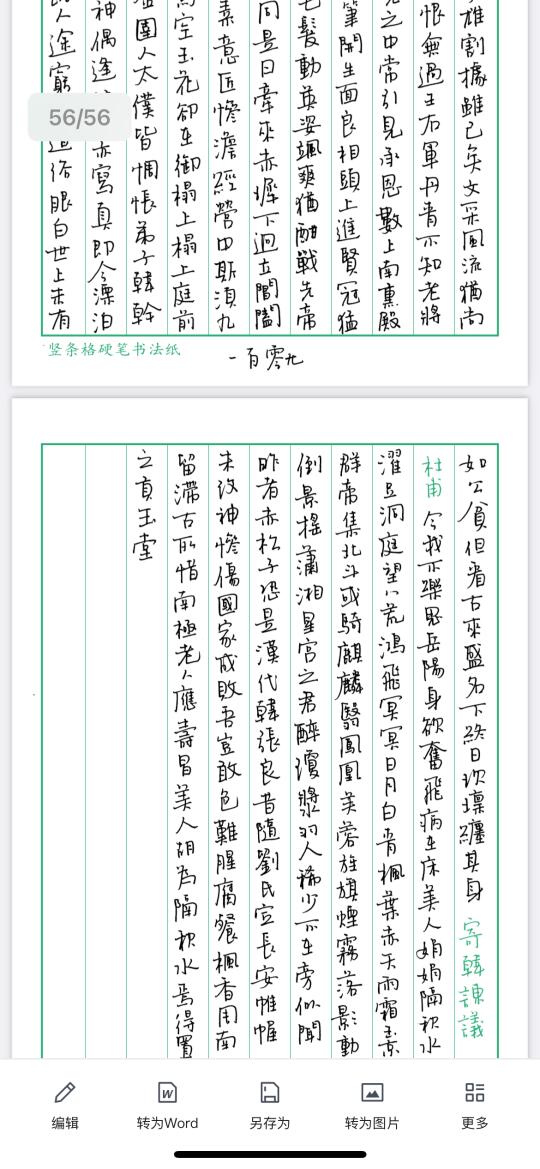 雄割據雖已矣文采風流猶尚
恨無過王右軍丹青不知老將
元之中常引見承恩數上南熏殿
筆開生面良相頭上進賢冠猛
毛髮動英姿颯爽猶酣戰先帝
同是日牽來赤墀下迥立閶闔
素意匠慘澹經營中斯須九
馬空玉花卻在御榻上榻上庭前
圉人太僕皆惆悵弟子韓幹
神偶逢亦寫真即今漂泊
人途窮遭俗眼白世上未有
56/56
竖条格硬笔书法纸
一百零九
如公貧但看古來盛名下終日坎壈纏其身 寄韓諫議
杜甫 今我不樂思岳陽身欲奮飛病在床美人娟娟隔秋水
濯足洞庭望八荒鴻飛冥冥日月白青楓葉赤天雨霜玉京
群帝集北斗或騎麒麟翳鳳凰芙蓉旌旗煙霧落影動
倒景搖瀟湘星宮之君醉瓊漿羽人稀少不在旁似聞
昨者赤松子恐是漢代韓張良昔隨劉氏定長安帷幄
未改神慘傷國家成敗吾豈敢色難腥腐餐楓香周南
留滯古所惜南極老人應壽昌美人胡為隔秋水焉得置
之貢玉堂
编辑
转为Word
另存为
转为图片
更多